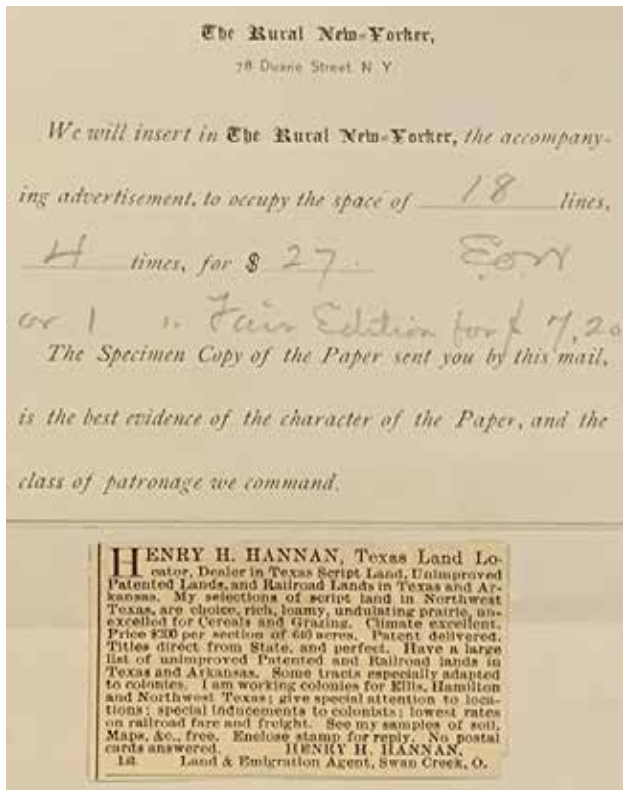 The Rural New-Yorker,
78 Duane Street, N Y
We will insert in The Rural New-Yorker, the accompany-
ing advertisement, to occupy the space of 18 lines,
4 times, for $ 27. E.O.W
or 1 " Fair Edition for $ 7,20
The Specimen Copy of the Paper sent you by this mail,
is the best evidence of the character of the Paper, and the
class of patronage we command.
HENRY H. HANNAN, Texas Land Lo-
cator, Dealer in Texas Script Land, Unimproved
Patented Lands, and Railroad Lands in Texas and Ar-
kansas. My selections of script land in Northwest
Texas, are choice, rich, loamy, undulating prairie, un-
excelled for Cereals and Grazing. Climate excellent.
Price $200 per section of 640 acres. Patent delivered.
Titles direct from State, and perfect. Have a large
list of unimproved Patented and Railroad lands in
Texas and Arkansas. Some tracts especially adapted
to colonies. I am working colonies for Ellis, Hamilton
and Northwest Texas; give special attention to loca-
tions; special inducements to colonists; lowest rates
on railroad fare and freight. See my samples of soil,
Maps, &c., free. Enclose stamp for reply. No postal
cards answered. HENRY H. HANNAN,
Land & Emigration Agent, Swan Creek, O.